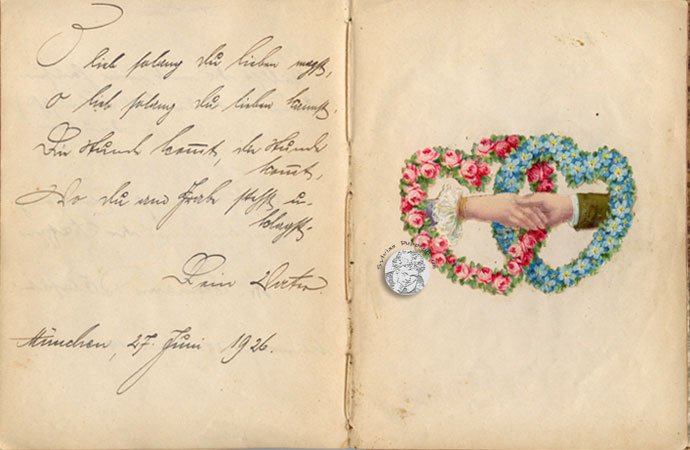 O lieb solang du lieben magst,
o lieb solang du lieben kannst,
Die Stunde kom̄t, die Stunde
kom̄t,
Wo du am Grabe stehst u.
klagst.
Dein Vater.
München, 27. Juni 1926.